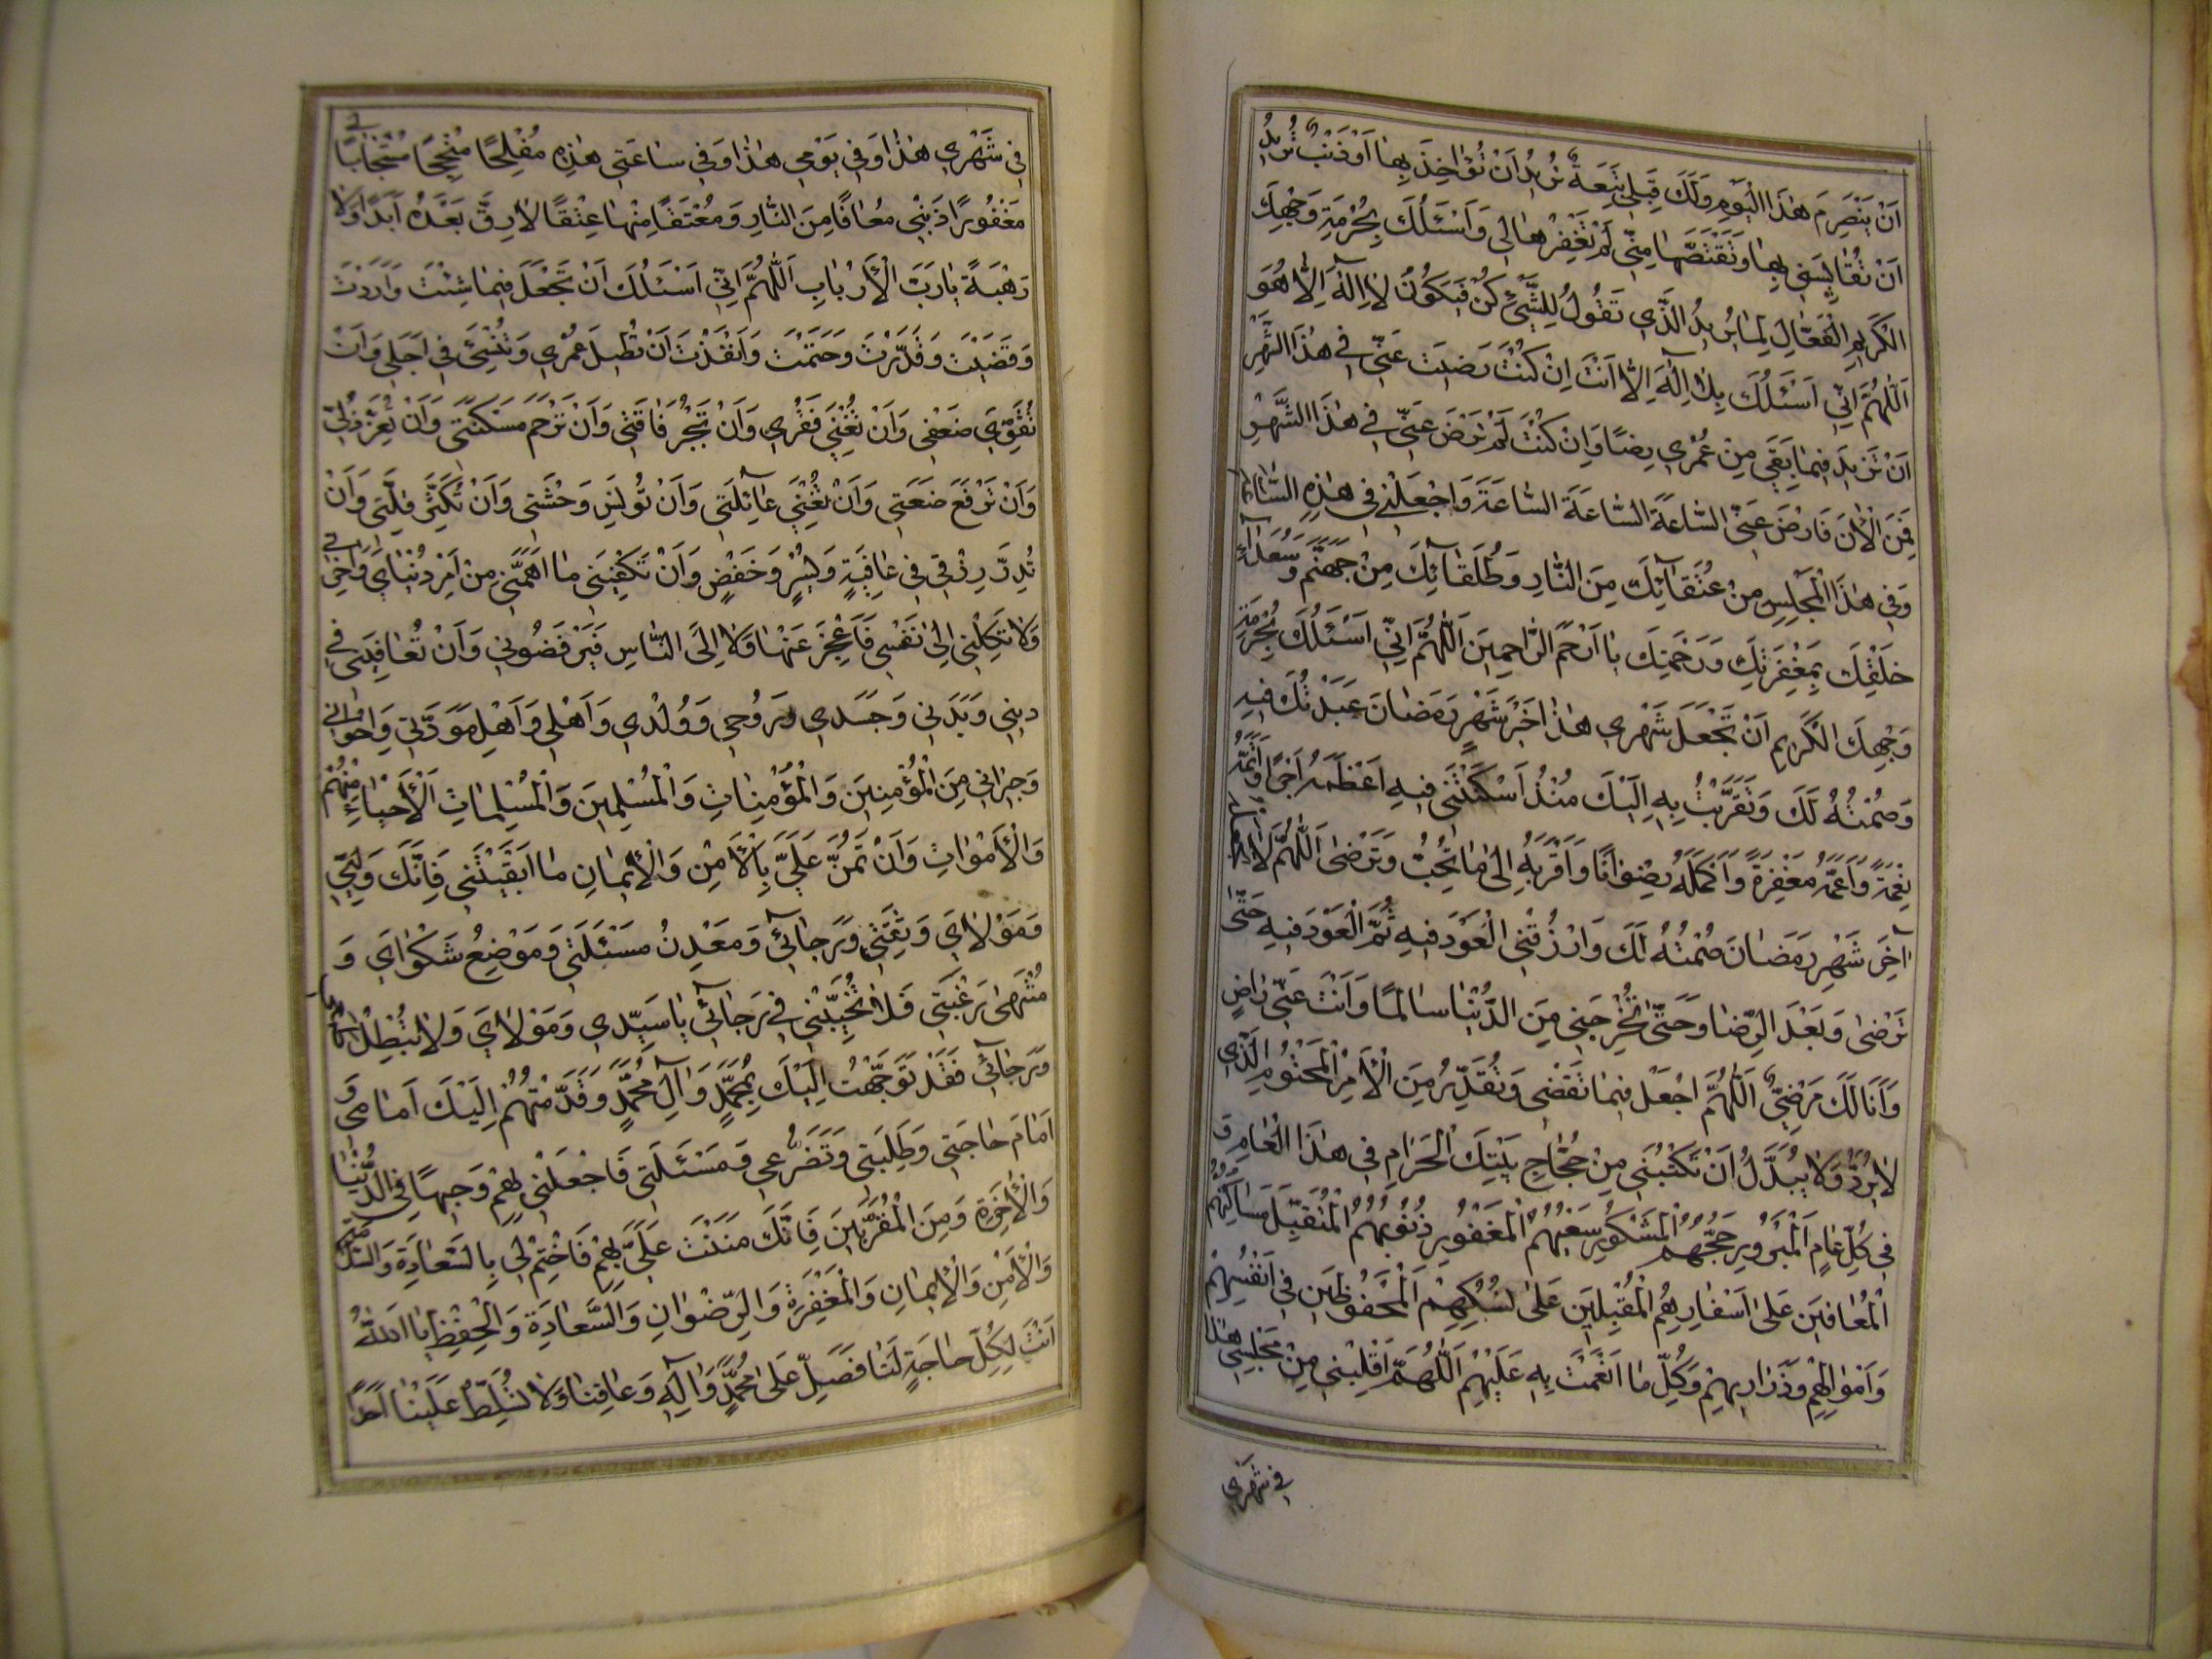 اَنْ يَنْصَرِمَ هٰذَا الْيَوْمِ وَلَكَ قِبَلِي تَبِعَةٌ تُرِيدُ اَنْ تُؤٰاخِذَ بِهٰا اَوْ ذَنْبٌ تُرِيدُ
اَنْ تُقٰايِسَنِي بِهٰا وَتَقْتَصَّهٰا مِنّي لَمْ تَغْفِرْهٰا لِي وَاَسْئَلُكَ بِحُرْمَةِ وَجْهِكَ
الْكَرِيمِ الْفَعّٰالِ لِمٰا يُرِيدُ الَّذِي تَقُولُ لِلشَّيْءِ كُنْ فَيَكُونُ لاٰ اِلٰهَ اِلاّٰ هُوَ
اَللّٰهُمَّ اِنّي اَسْئَلُكَ بِلاٰ اِلٰهَ اِلاّٰ اَنْتَ اِنْ كُنْتَ رَضِيتَ عَنّي في هٰذَا الشَّهْرِ
اَنْ تَزِيدَ فِيمٰا بَقِيَ مِنْ عُمْرِي رِضًا وَاِنْ كُنْتَ لَمْ تَرْضَ عَنّي في هٰذَا الشَّهْرِ
فَمِنَ الْاٰنَ فَارْضَ عَنِّي السّٰاعَةَ السّٰاعَةَ السّٰاعَةَ وَاجْعَلْنِي في هٰذِهِ السّٰاعَةِ
وَفي هٰذَا الْمَجْلِسِ مِنْ عُتَقٰائِكَ مِنَ النّٰارِ وَطُلَقٰائِكَ مِنْ جَهَنَّمَ وَسُعَدٰاءِ
خَلْقِكَ بِمَغْفِرَتِكَ وَرَحْمَتِكَ يٰا اَرْحَمَ الرّٰاحِمِينَ اَللّٰهُمَّ اِنّي اَسْئَلُكَ بِحُرْمَةِ
وَجْهِكَ الْكَرِيمِ اَنْ تَجْعَلَ شَهْرِي هٰذٰا خَيْرَ شَهْرِ رَمَضٰانَ عَبَدْتُكَ فِيهِ
وَصُمْتُهُ لَكَ وَتَقَرَّبْتُ بِهِ اِلَيْكَ مُنْذُ اَسْكَنْتَنِي فِيهِ اَعْظَمَهُ اَجْرًا وَاَتَمَّهُ
نِعْمَةً وَاَعَمَّهُ مَغْفِرَةً وَاَكْمَلَهُ رِضْوٰانًا وَاَقْرَبَهُ اِلىٰ مٰا تُحِبُّ وَتَرْضىٰ اَللّٰهُمَّ لاٰ تَجْعَلْهُ
اٰخِرَ شَهْرِ رَمَضٰانَ صُمْتُهُ لَكَ وَارْزُقْنِي الْعَوْدَ فِيهِ ثُمَّ الْعَوْدَ فِيهِ حَتّٰى
تَرْضىٰ وَبَعْدَ الرِّضٰا وَحَتّٰى تُخْرِجَنِي مِنَ الدُّنْيٰا سٰالِمًا وَاَنْتَ عَنّي رٰاضٍ
وَاَنَا لَكَ مَرْضِيٌّ اَللّٰهُمَّ اجْعَلْ فِيمٰا تَقْضِي وَتُقَدِّرُ مِنَ الْاَمْرِ الْمَحْتُومِ الَّذِي
لاٰ يُرَدُّ وَلاٰ يُبَدَّلُ اَنْ تَكْتُبَنِي مِنْ حُجّٰاجِ بَيْتِكَ الْحَرٰامِ في هٰذَا الْعٰامِ وَ
في كُلِّ عٰامٍ الْمَبْرُورِ حَجُّهُمُ الْمَشْكُورِ سَعْيُهُمُ الْمَغْفُورِ ذُنُوبُهُمُ الْمُتَقَبَّلِ مَنٰاسِكُهُمُ
الْمُعٰافَيْنَ عَلىٰ اَسْفٰارِهِمُ الْمُقْبِلِينَ عَلىٰ نُسُكِهِمْ الْمَحْفُوظِينَ في اَنْفُسِهِمْ
وَاَمْوٰالِهِمْ وَذَرٰارِيهِمْ وَكُلِّ مٰا اَنْعَمْتَ بِهِ عَلَيْهِمْ اَللّٰهُمَّ اَقْلِبْنِي مِنْ مَجْلِسِي هٰذٰا
في شهري
في شَهْرِي هٰذٰا وَفي يَوْمِي هٰذٰا وَفي سٰاعَتي هٰذِهِ مُفْلِحًا مُنْجِحًا مُسْتَجٰابًا لي
مَغْفُورًا ذَنْبِي مُعٰافًا مِنَ النّٰارِ وَمُعْتَقًا مِنْهٰا عِتْقًا لاٰ رِقَّ بَعْدَهُ اَبَدًا وَلاٰ
رَهْبَةً يٰا رَبَّ الْاَرْبٰابِ اَللّٰهُمَّ اِنّي اَسْئَلُكَ اَنْ تَجْعَلَ فِيمٰا شِئْتَ وَاَرَدْتَ
وَقَضَيْتَ وَقَدَّرْتَ وَحَتَمْتَ وَاَنْفَذْتَ اَنْ تُطِيلَ عُمْرِي وَتُنْسِئَ في اَجَلِي وَاَنْ
تُقَوِّيَ ضَعْفِي وَاَنْ تُغْنِيَ فَقْرِي وَاَنْ تَجْبُرَ فٰاقَتي وَاَنْ تَرْحَمَ مَسْكَنَتي وَاَنْ تُعِزَّ ذُلّي
وَاَنْ تَرْفَعَ ضَعَتي وَاَنْ تُغْنِيَ عٰائِلَتي وَاَنْ تُونِسَ وَحْشَتي وَاَنْ تُكَثِّرَ قِلَّتي وَاَنْ
تُدِرَّ رِزْقي في عٰافِيَةٍ وَيُسْرٍ وَخَفْضٍ وَاَنْ تَكْفِيَني مٰا اَهَمَّني مِنْ اَمْرِ دُنْيٰايَ وَاٰخِرَتي
وَلاٰ تَكِلْني اِلىٰ نَفْسي فَاَعْجِزَ عَنْهٰا وَلاٰ اِلَى النّٰاسِ فَيَرْفَضُوني وَاَنْ تُعٰافِيَني في
دِيني وَبَدَني وَجَسَدي وَرُوحي وَوُلْدي وَاَهْلي وَاَهْلِ مَوَدَّتي وَاِخْوٰاني
وَجِيرٰاني مِنَ الْمُؤْمِنِينَ وَالْمُؤْمِنٰاتِ وَالْمُسْلِمِينَ وَالْمُسْلِمٰاتِ الْاَحْيٰاءِ مِنْهُمْ
وَالْاَمْوٰاتِ وَاَنْ تَمُنَّ عَلَيَّ بِالْاَمْنِ وَالْاِيمٰانِ مٰا اَبْقَيْتَني فَاِنَّكَ وَلِيّي
وَمَوْلاٰيَ وَثِقَتي وَرَجٰائي وَمَعْدِنُ مَسْئَلَتي وَمَوْضِعُ شَكْوٰايَ وَ
مُنْتَهىٰ رَغْبَتي فَلاٰ تُخَيِّبْني في رَجٰائي يٰا سَيِّدي وَمَوْلاٰيَ وَلاٰ تُبْطِلْ طَمَعي
وَرَجٰائي فَقَدْ تَوَجَّهْتُ اِلَيْكَ بِمُحَمَّدٍ وَاٰلِ مُحَمَّدٍ وَقَدَّمْتُهُمْ اِلَيْكَ اَمٰامي وَ
اَمٰامَ حٰاجَتي وَطَلِبَتي وَتَضَرُّعي وَمَسْئَلَتي فَاجْعَلْني بِهِمْ وَجِيهًا فِي الدُّنْيٰا
وَالْاٰخِرَةِ وَمِنَ الْمُقَرَّبِينَ فَاِنَّكَ مَنَنْتَ عَلَيَّ بِهِمْ فَاخْتِمْ لي بِالسَّعٰادَةِ وَالسَّلاٰمَةِ
وَالْاَمْنِ وَالْاِيمٰانِ وَالْمَغْفِرَةِ وَالرِّضْوٰانِ وَالسَّعٰادَةِ وَالْحِفْظِ يٰا اَللّٰهُ
اَنْتَ لِكُلِّ حٰاجَةٍ لَنٰا فَصَلِّ عَلىٰ مُحَمَّدٍ وَاٰلِهِ وَعٰافِنٰا وَلاٰ تُسَلِّطْ عَلَيْنٰا اَحَدًا